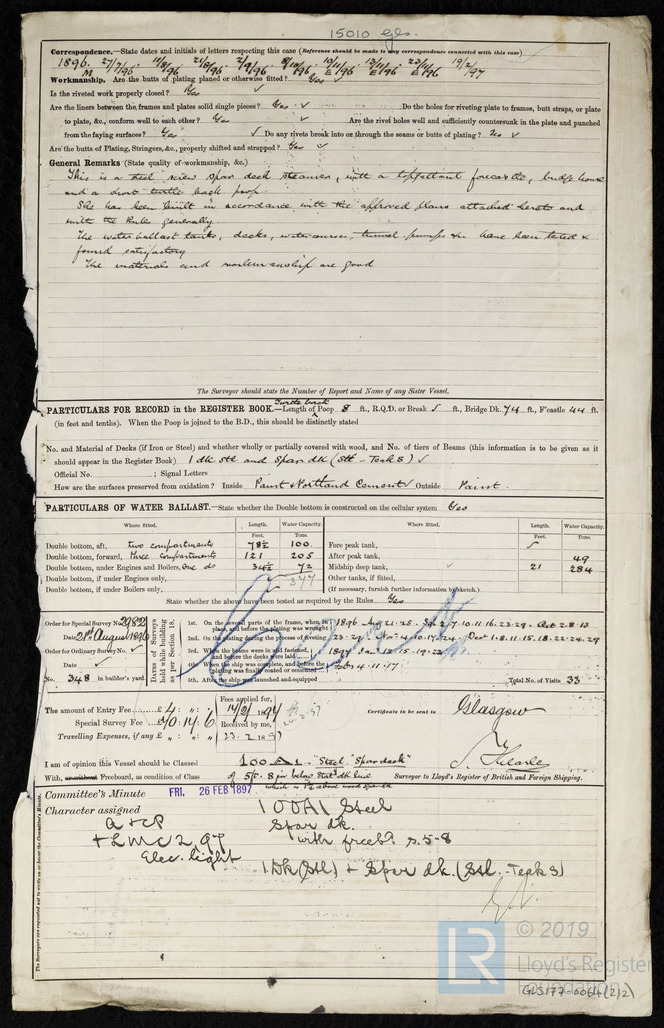 15010 Gls.
Correspondence.—State dates and initials of letters respecting this case (Reference should be made to any correspondence connected with this case)
1896. 27/7/96 11/8/96 21/8/96 2/9/96 8/10/96 10/11/96 13/11/96 23/11/96 19/2/97
M E E E
Workmanship. Are the butts of plating planed or otherwise fitted? Yes
Is the riveted work properly closed? Yes
Are the liners between the frames and plates solid single pieces? Yes Do the holes for riveting plate to frames, butt straps, or plate
to plate, &c., conform well to each other? Yes Are the rivet holes well and sufficiently countersunk in the plate and punched
from the faying surfaces? Yes Do any rivets break into or through the seams or butts of plating? No
Are the butts of Plating, Stringers, &c., properly shifted and strapped? Yes
General Remarks (State quality of workmanship, &c.)
This is a steel screw spar deck steamer, with a topgallant forecastle, bridge house
and a short turtle back poop
She has been built in accordance with the approved plans attached hereto and
with the Rules generally
The water ballast tanks, decks, watercourses, tunnel pumps &c have been tested &
found satisfactory
The materials and workmanship are good
The Surveyor should state the Number of Report and Name of any Sister Vessel.
PARTICULARS FOR RECORD in the REGISTER BOOK.—Length of Turtle back Poop 8 ft., R.Q.D. or Break ft., Bridge Dk. 74 ft., F'castle 44 ft.
(in feet and tenths). When the Poop is joined to the B.D., this should be distinctly stated
No. and Material of Decks (if Iron or Steel) and whether wholly or partially covered with wood, and No. of tiers of Beams (this information is to be given as it
should appear in the Register Book) 1 dk Stl and Spar dk (Stl - Teak S)
Official No. ; Signal Letters
How are the surfaces preserved from oxidation? Inside Paint & Portland Cement Outside Paint.
PARTICULARS OF WATER BALLAST.—State whether the Double bottom is constructed on the cellular system Yes
Where fitted. Length. Water Capacity. Where fitted. Length. Water Capacity.
Feet. Tons. Feet. Tons.
Double bottom, aft, two compartments 78½ 100. Fore peak tank,
Double bottom, forward, three compartments 121 205 After peak tank, 49
Double bottom, under Engines and Boilers, one do 34½ 72 Midship deep tank, 21 284
Double bottom, if under Engines only, 377 Other tanks, if fitted,
Double bottom, if under Boilers only, (If necessary, furnish further information by sketch.)
State whether the above have been tested as required by the Rules Yes
Order for Special Survey No. 2982
Date 21st August 1896
Order for Ordinary Survey No.
Date
No. 348 in builder's yard.
Dates of Surveys held while building as per Section 18.
1st. On the several parts of the frame, when in place, and before the plating was wrought 1896 Aug 21. 25. Sep 2. 7. 10. 11. 16. 23. 29. Oct 2. 8. 13
2nd. On the plating during the process of riveting
3rd. When the beams were in and fastened, and before the decks were laid
4th. When the ship was complete, and before the plating was finally coated or cemented Feb 4. 11. 17
5th. After the ship was launched and equipped
Total No. of Visits 33
The amount of Entry Fee £4 : " : "
Special Survey Fee £70 : 14 : 6
Travelling Expenses, if any £ " : " : "
Fees applied for,
19/2/1897
Received by me,
23. 2. 1897
Certificate to be sent to Glasgow
I am of opinion this Vessel should be Classed 100A1. Steel "Spar deck"
With, or without Freeboard, as condition of Class of 5ft. 8 in below Stat. dk line
Surveyor to Lloyd's Register of British and Foreign Shipping.
Committee's Minute FRI. 26 FEB 1897
Character assigned 100A1 Steel
Spar dk.
A & CP
+ LMC 2,97
Elec. light
with freeb? s. 5-8
1Dk (Stl) + Spar dk. (Stl. - Teak S)
The Surveyors are requested not to write on or below the Committee's Minute.
LR
© 2019
Lloyd's Register
Foundation
GLS177-0064 (2/2)